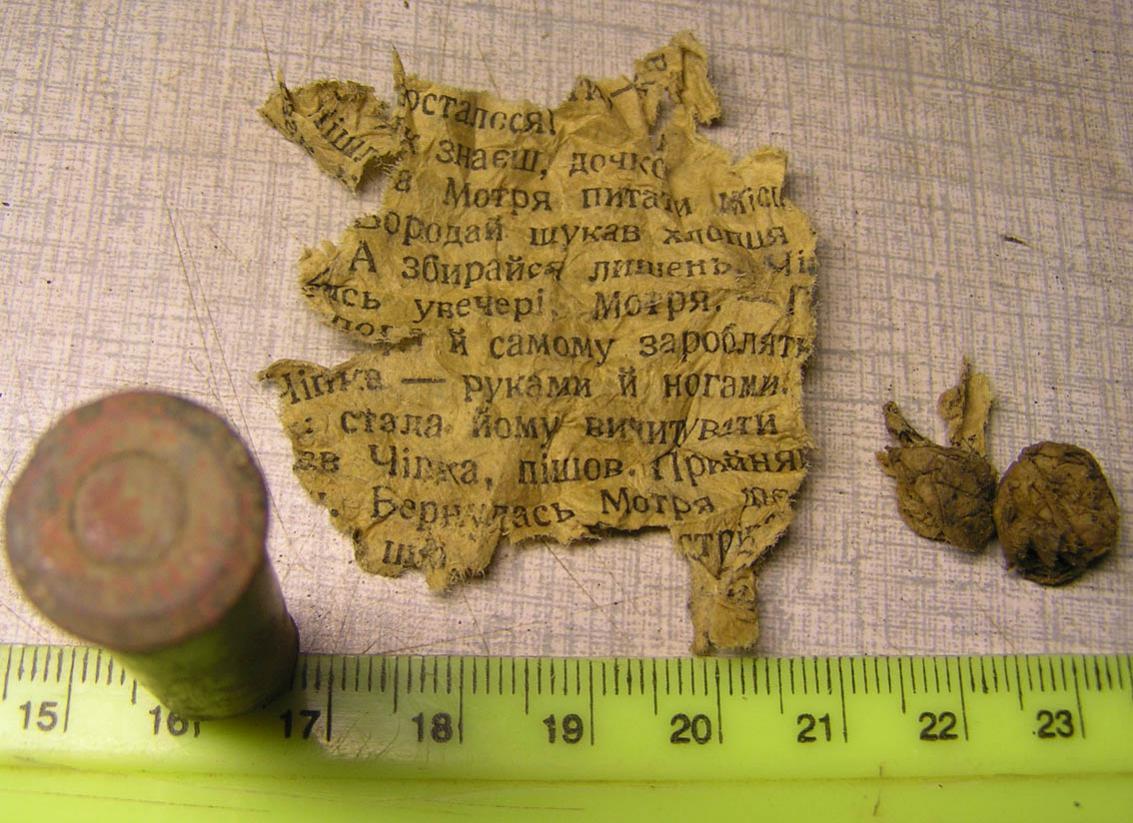 осталося!
знаєш, дочко
а Мотря питати місц
Бородай шукав хлопця
А збирайся лишень, Чіп
ись увечері Мотря. — П
й самому зароблять
Чіпка — руками й ногами.
стала йому вичитувати
Чіпка, пішов. Прийня
Бернулась Мотря
15 16 17 18 19 20 21 22 23